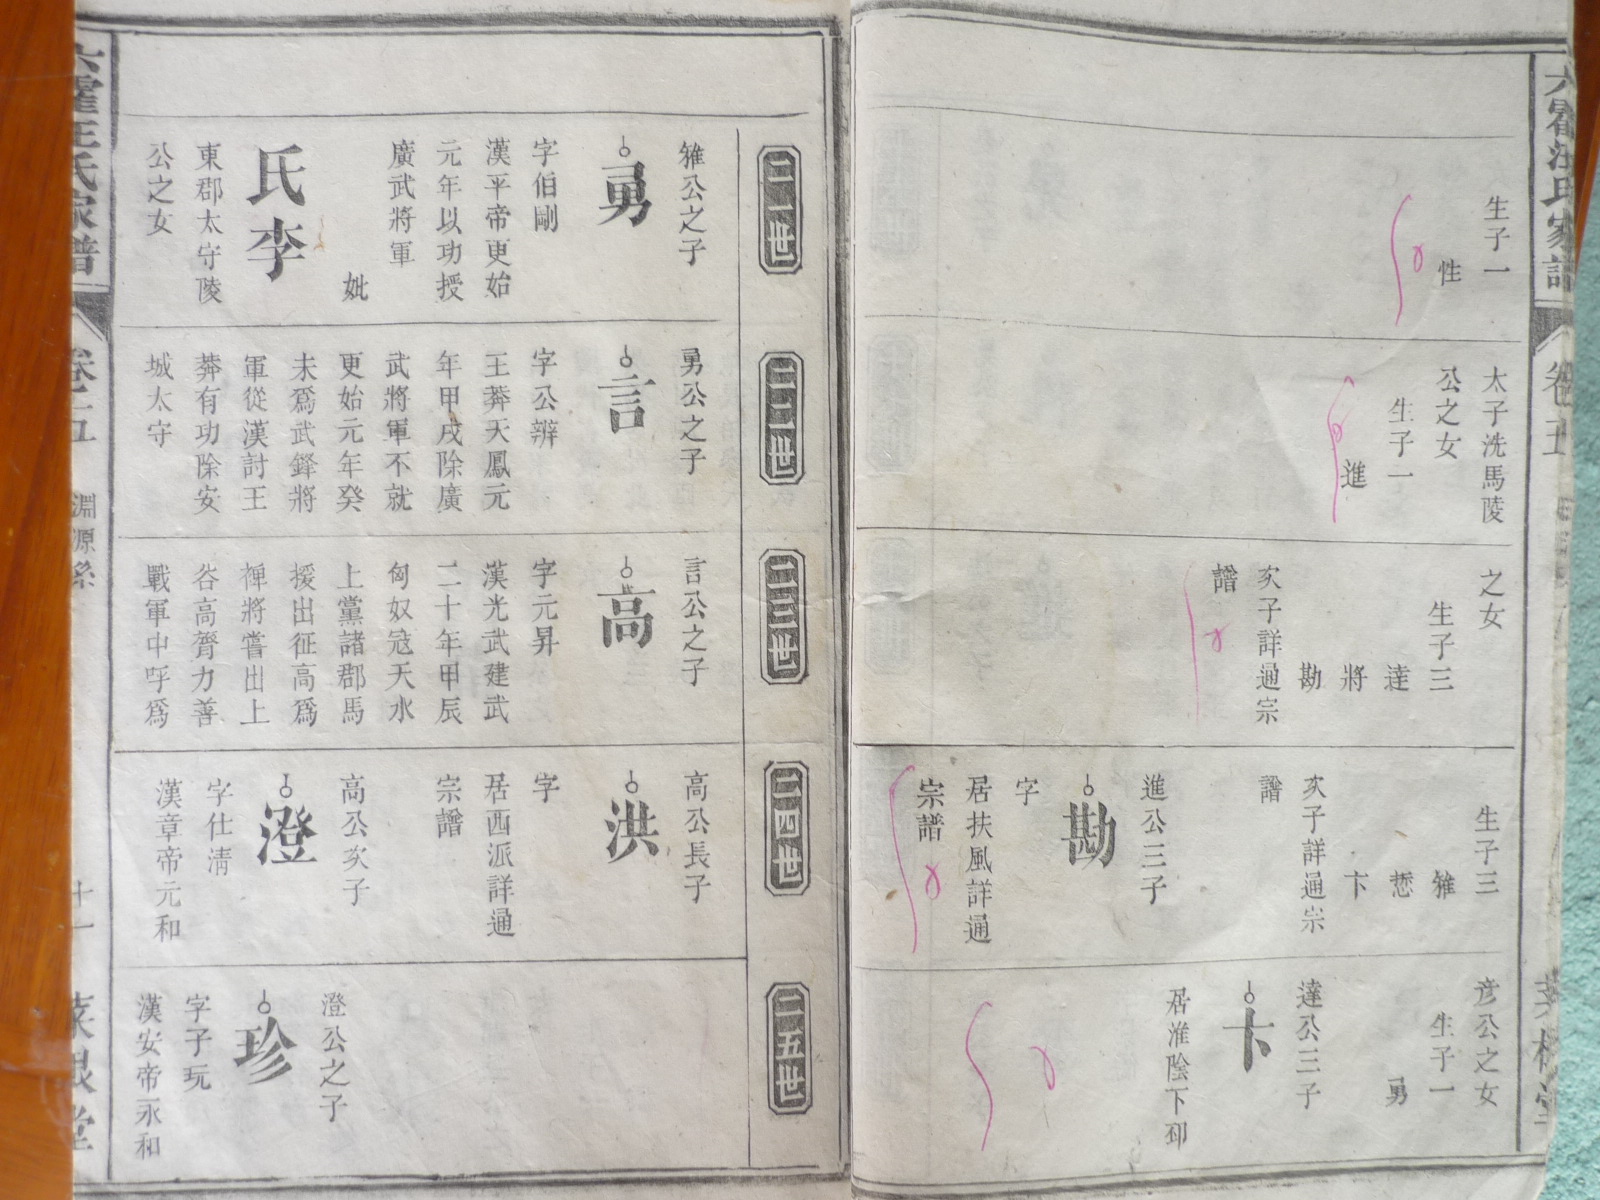 六霍汪氏家譜
卷五
生子一
性
太子洗馬陵
公之女
生子一
進
之女
生子三
達
將
勘
亥子詳通宗
譜
生子三
雅
悊
卞
亥子詳通宗
譜
進公三子
勘
字
居扶風詳通
宗譜
彦公之女
生子一
勇
達公三子
卞
居淮陰下邳
二一世
雅公之子
勇
字伯剛
漢平帝更始
元年以功授
廣武將軍
妣
氏李
東郡太守陵
公之女
二二世
勇公之子
言
字公辨
王莽天鳳元
年甲戌除廣
武將軍不就
更始元年癸
未爲武鋒將
軍從漢討王
莽有功除安
城太守
二三世
言公之子
高
字元昇
漢光武建武
二十年甲辰
匈奴寇天水
上黨諸郡馬
援出征高爲
裨將嘗出上
谷高膂力善
戰軍中呼爲
二四世
高公長子
洪
字
居西派詳通
宗譜
高公亥子
澄
字仕清
漢章帝元和
二五世
澄公之子
珍
字子玩
漢安帝永和
六霍汪氏家譜
卷五
淵源系
十一